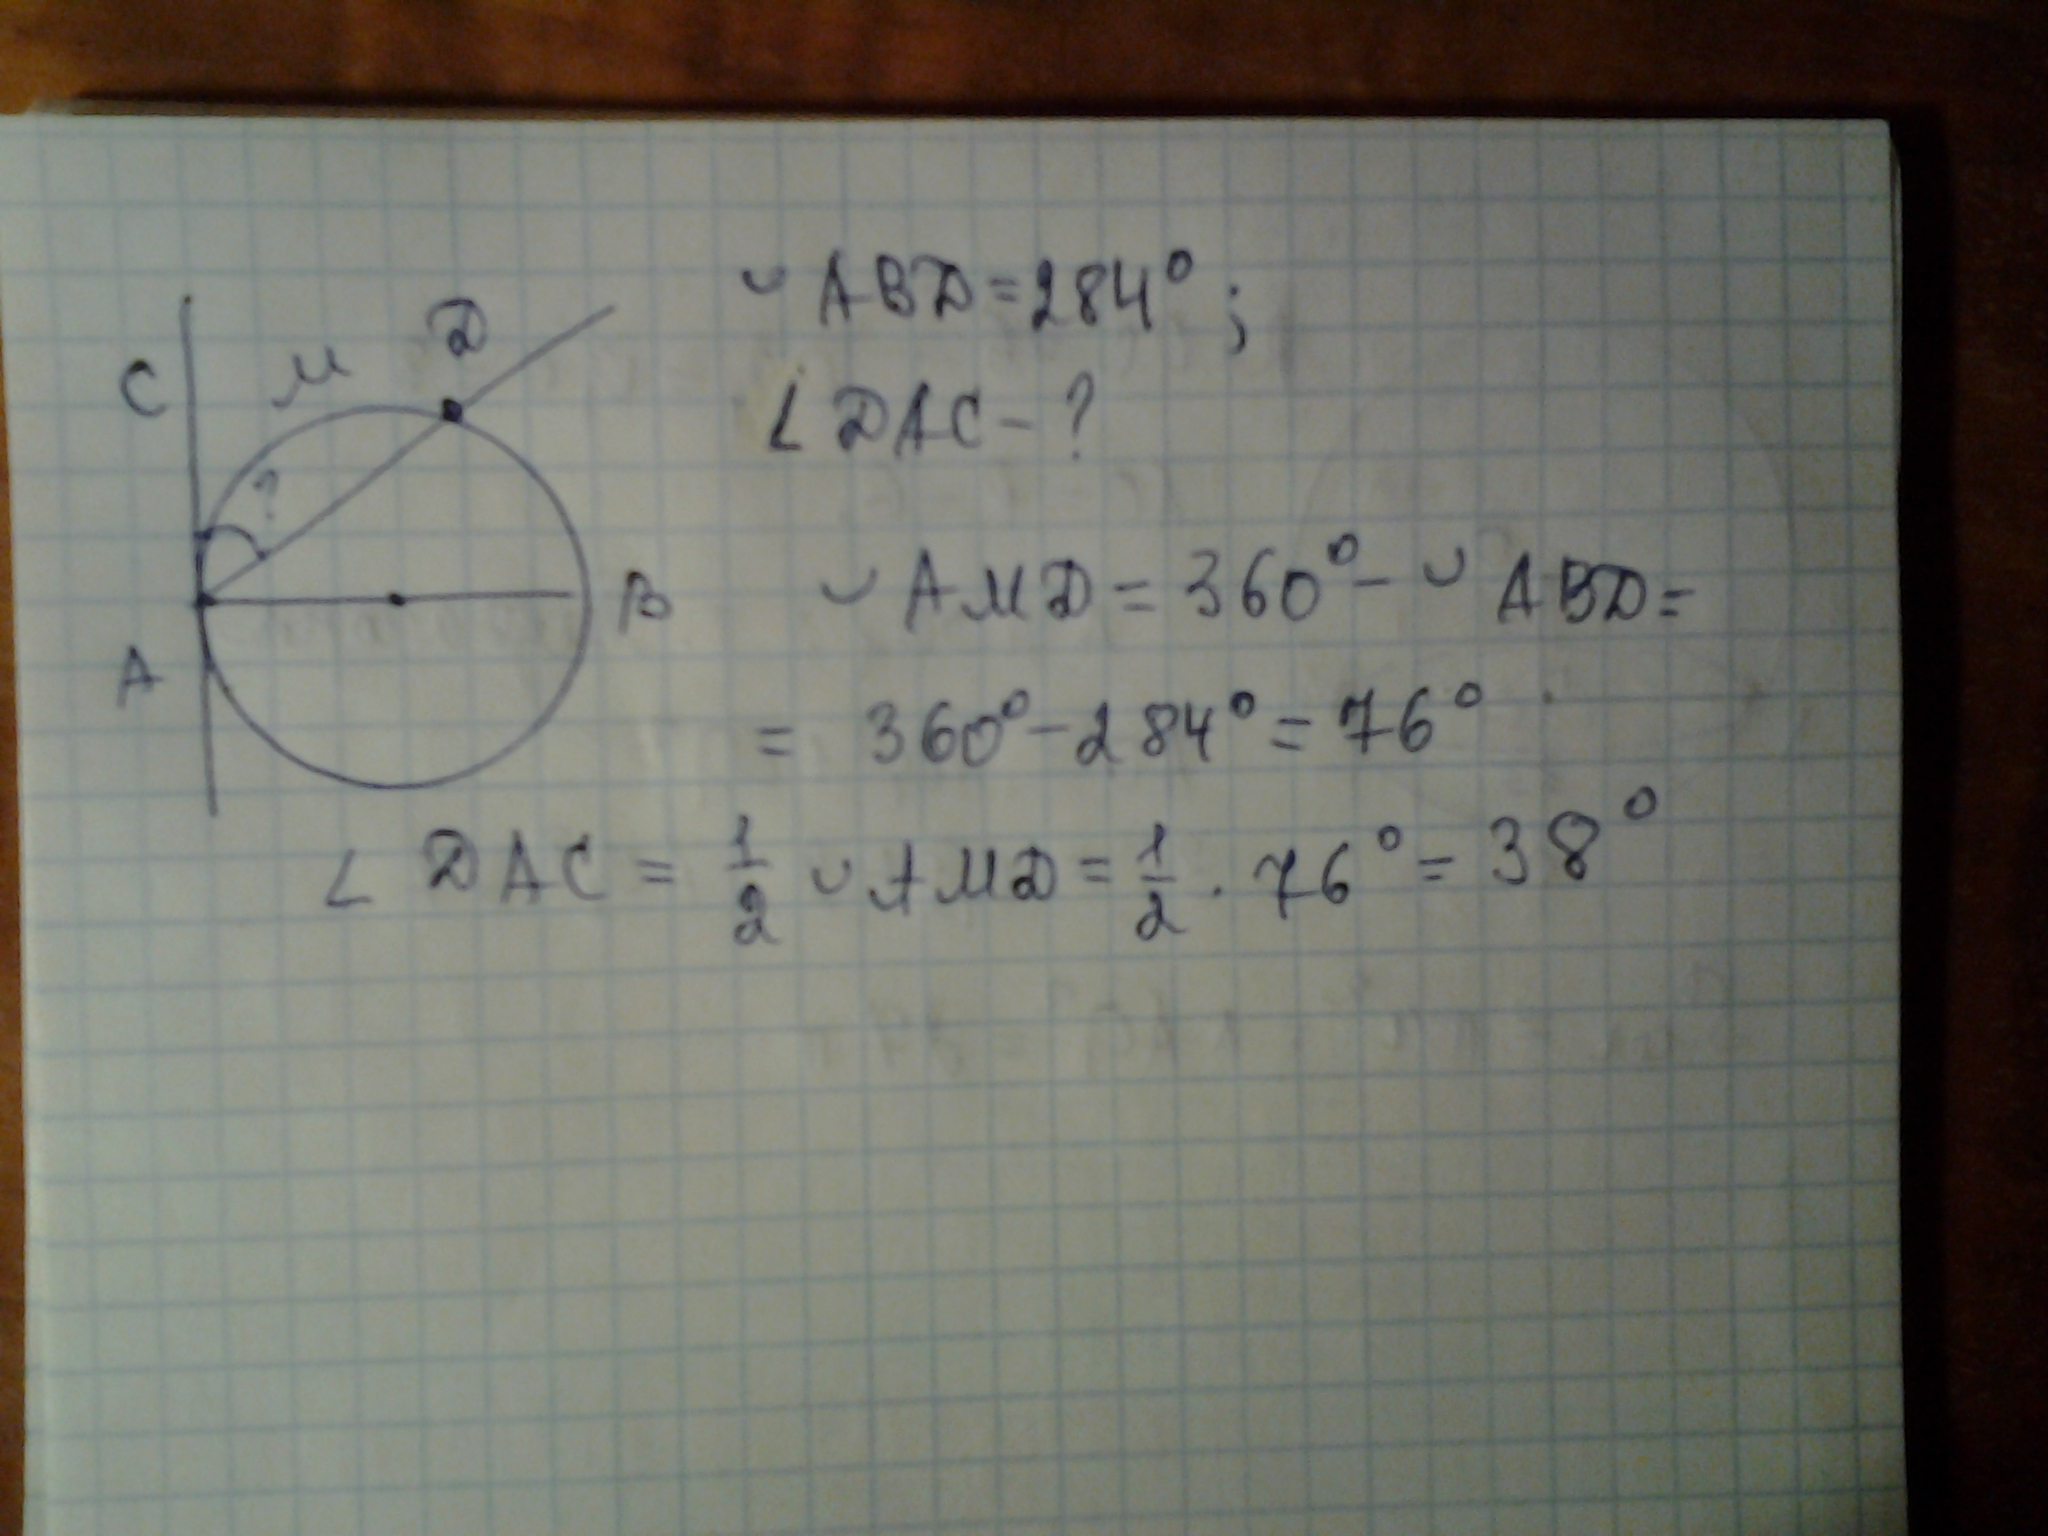 C
M
D
?
A
B
◡ ABD = 284° ;
∠ DAC - ?
◡ AMD = 360° - ◡ ABD =
= 360° - 284° = 76°
∠ DAC = 1/2 ◡ AMD = 1/2 · 76° = 38°